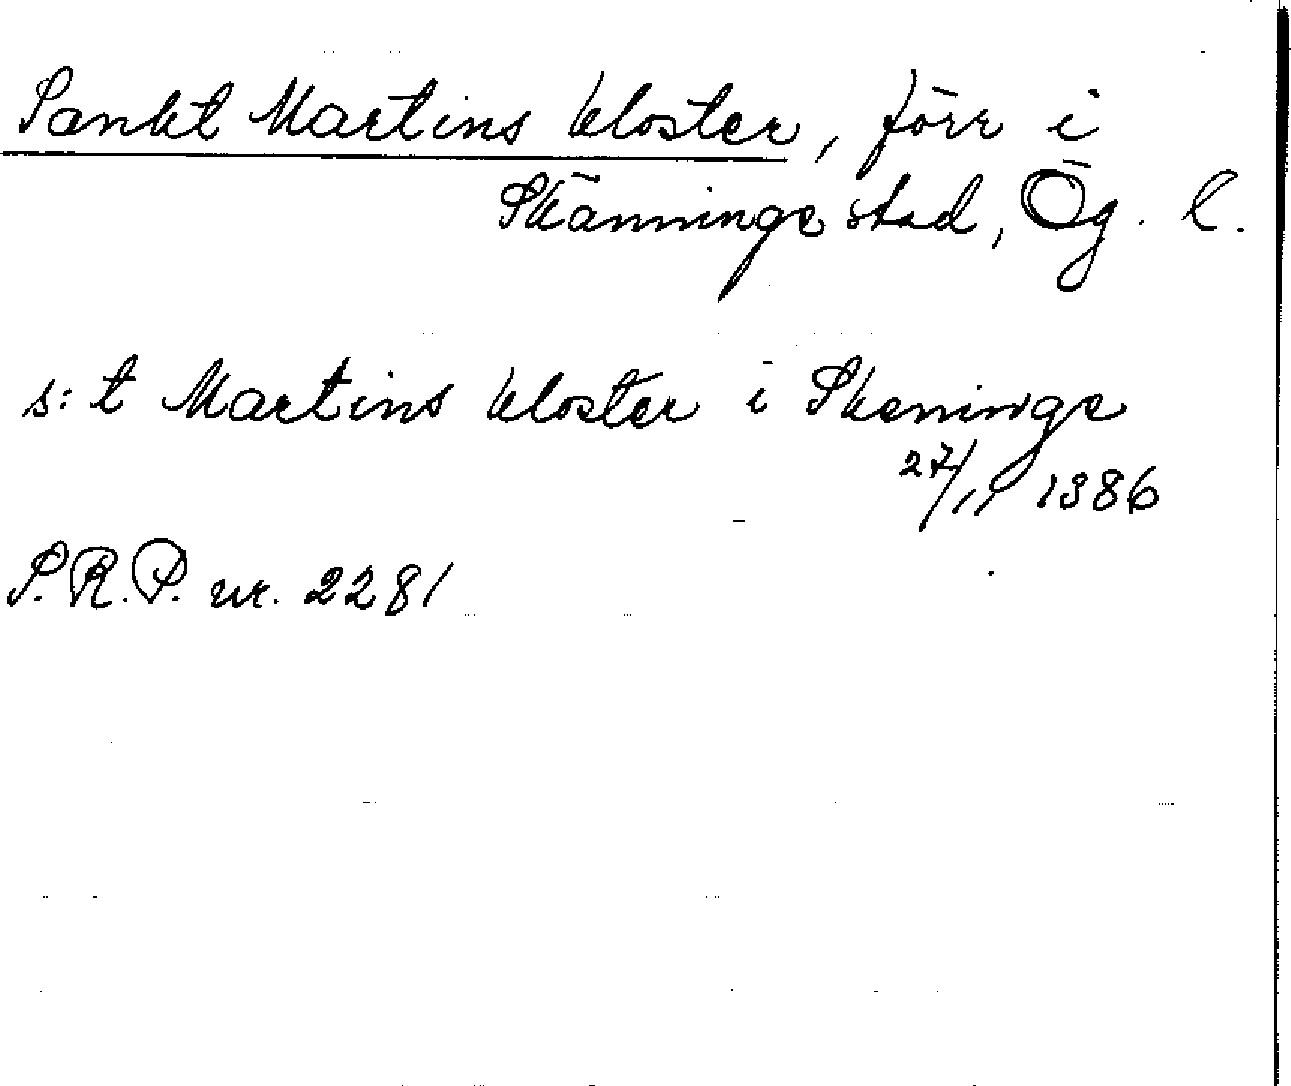 Sankt Martins kloster, förr i
Skänninge stad, Ög. l.
s:t Martins kloster i Skeninge
27/11 1386
S.R.P. nr. 2281